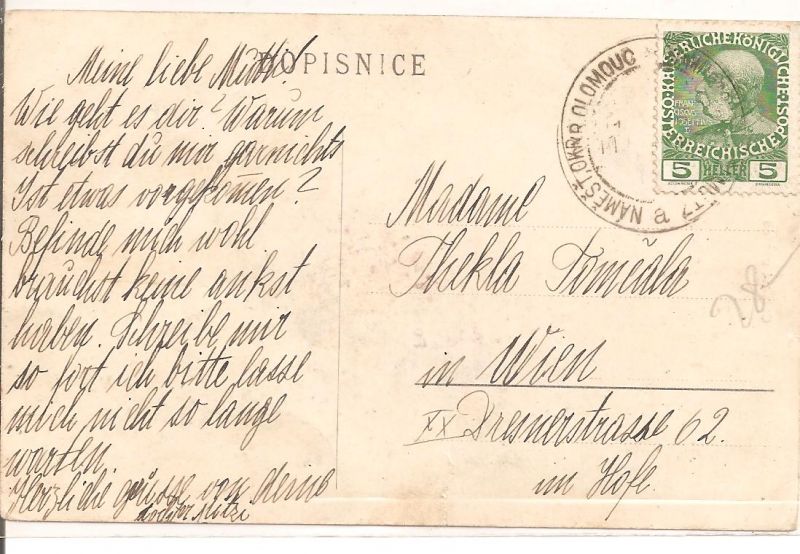 DOPISNICE
Meine liebe Mutti
Wie geht es dir? Warum
schreibst du mir garnichts
Ist etwas vorgekomen?
Befinde mich wohl
brauchst keine ankst
haben. Schreibe mir
so fort ich bitte lasse
mich nicht so lange
warten.
Herzliche grüsse von deine
tochter Mitzi
Madame
Thekla Tomečala
in Wien
XX Dresnerstrasse 62.
im Hofe.
28
NÁMĚST.OKR.B.OLOMOUC
a
KAISERLICHE KÖNIGLICHE
ÖSTERREICHISCHE POST
FRAN
CISCVS
IOSEPH I
5 HELLER 5